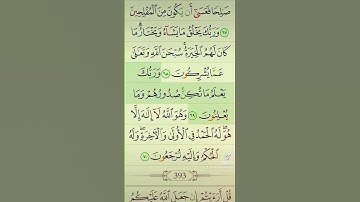 صَٰلِحًا فَعَسَىٰٓ أَن يَكُونَ مِنَ ٱلْمُفْلِحِينَ
٦٧ وَرَبُّكَ يَخْلُقُ مَا يَشَآءُ وَيَخْتَارُ ۗ مَا
كَانَ لَهُمُ ٱلْخِيَرَةُ ۚ سُبْحَٰنَ ٱللَّهِ وَتَعَٰلَىٰ
عَمَّا يُشْرِكُونَ ٦٨ وَرَبُّكَ
يَعْلَمُ مَا تُكِنُّ صُدُورُهُمْ وَمَا
يُعْلِنُونَ ٦٩ وَهُوَ ٱللَّهُ لَآ إِلَٰهَ إِلَّا
هُوَ ۖ لَهُ ٱلْحَمْدُ فِى ٱلْأُولَىٰ وَٱلْءَاخِرَةِ ۖ وَلَهُ
ٱلْحُكْمُ وَإِلَيْهِ تُرْجَعُونَ ٧٠
393
قُلْ أَرَءَيْتُمْ إِن جَعَلَ ٱللَّهُ عَلَيْكُمُ